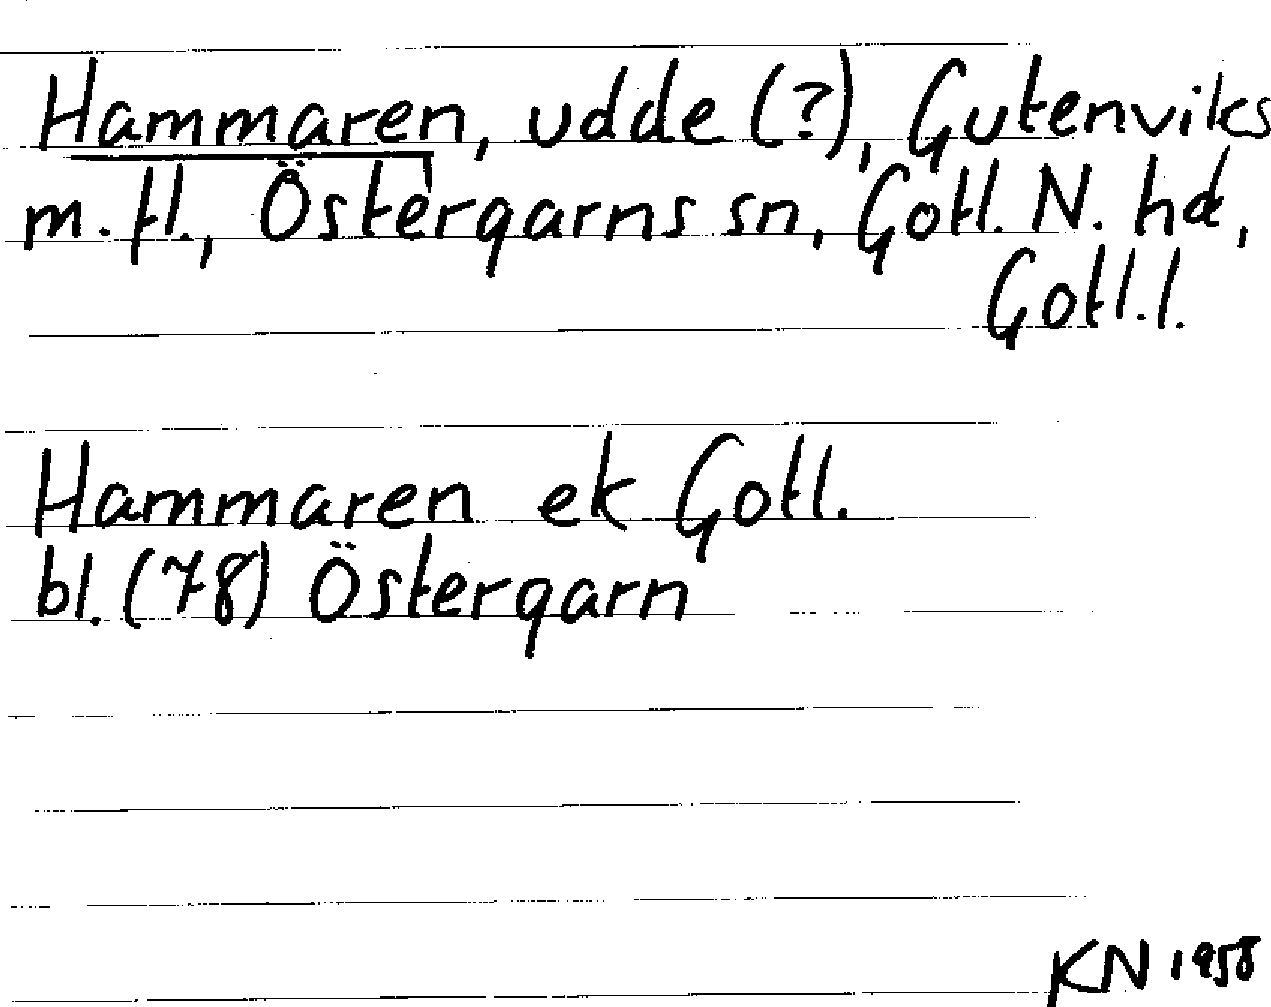 Hammaren, udde (?), Gutenviks
m. fl., Östergarns sn, Gotl. N. hd,
Gotl. l.
Hammaren ek Gotl.
bl. (78) Östergarn
KN 1958